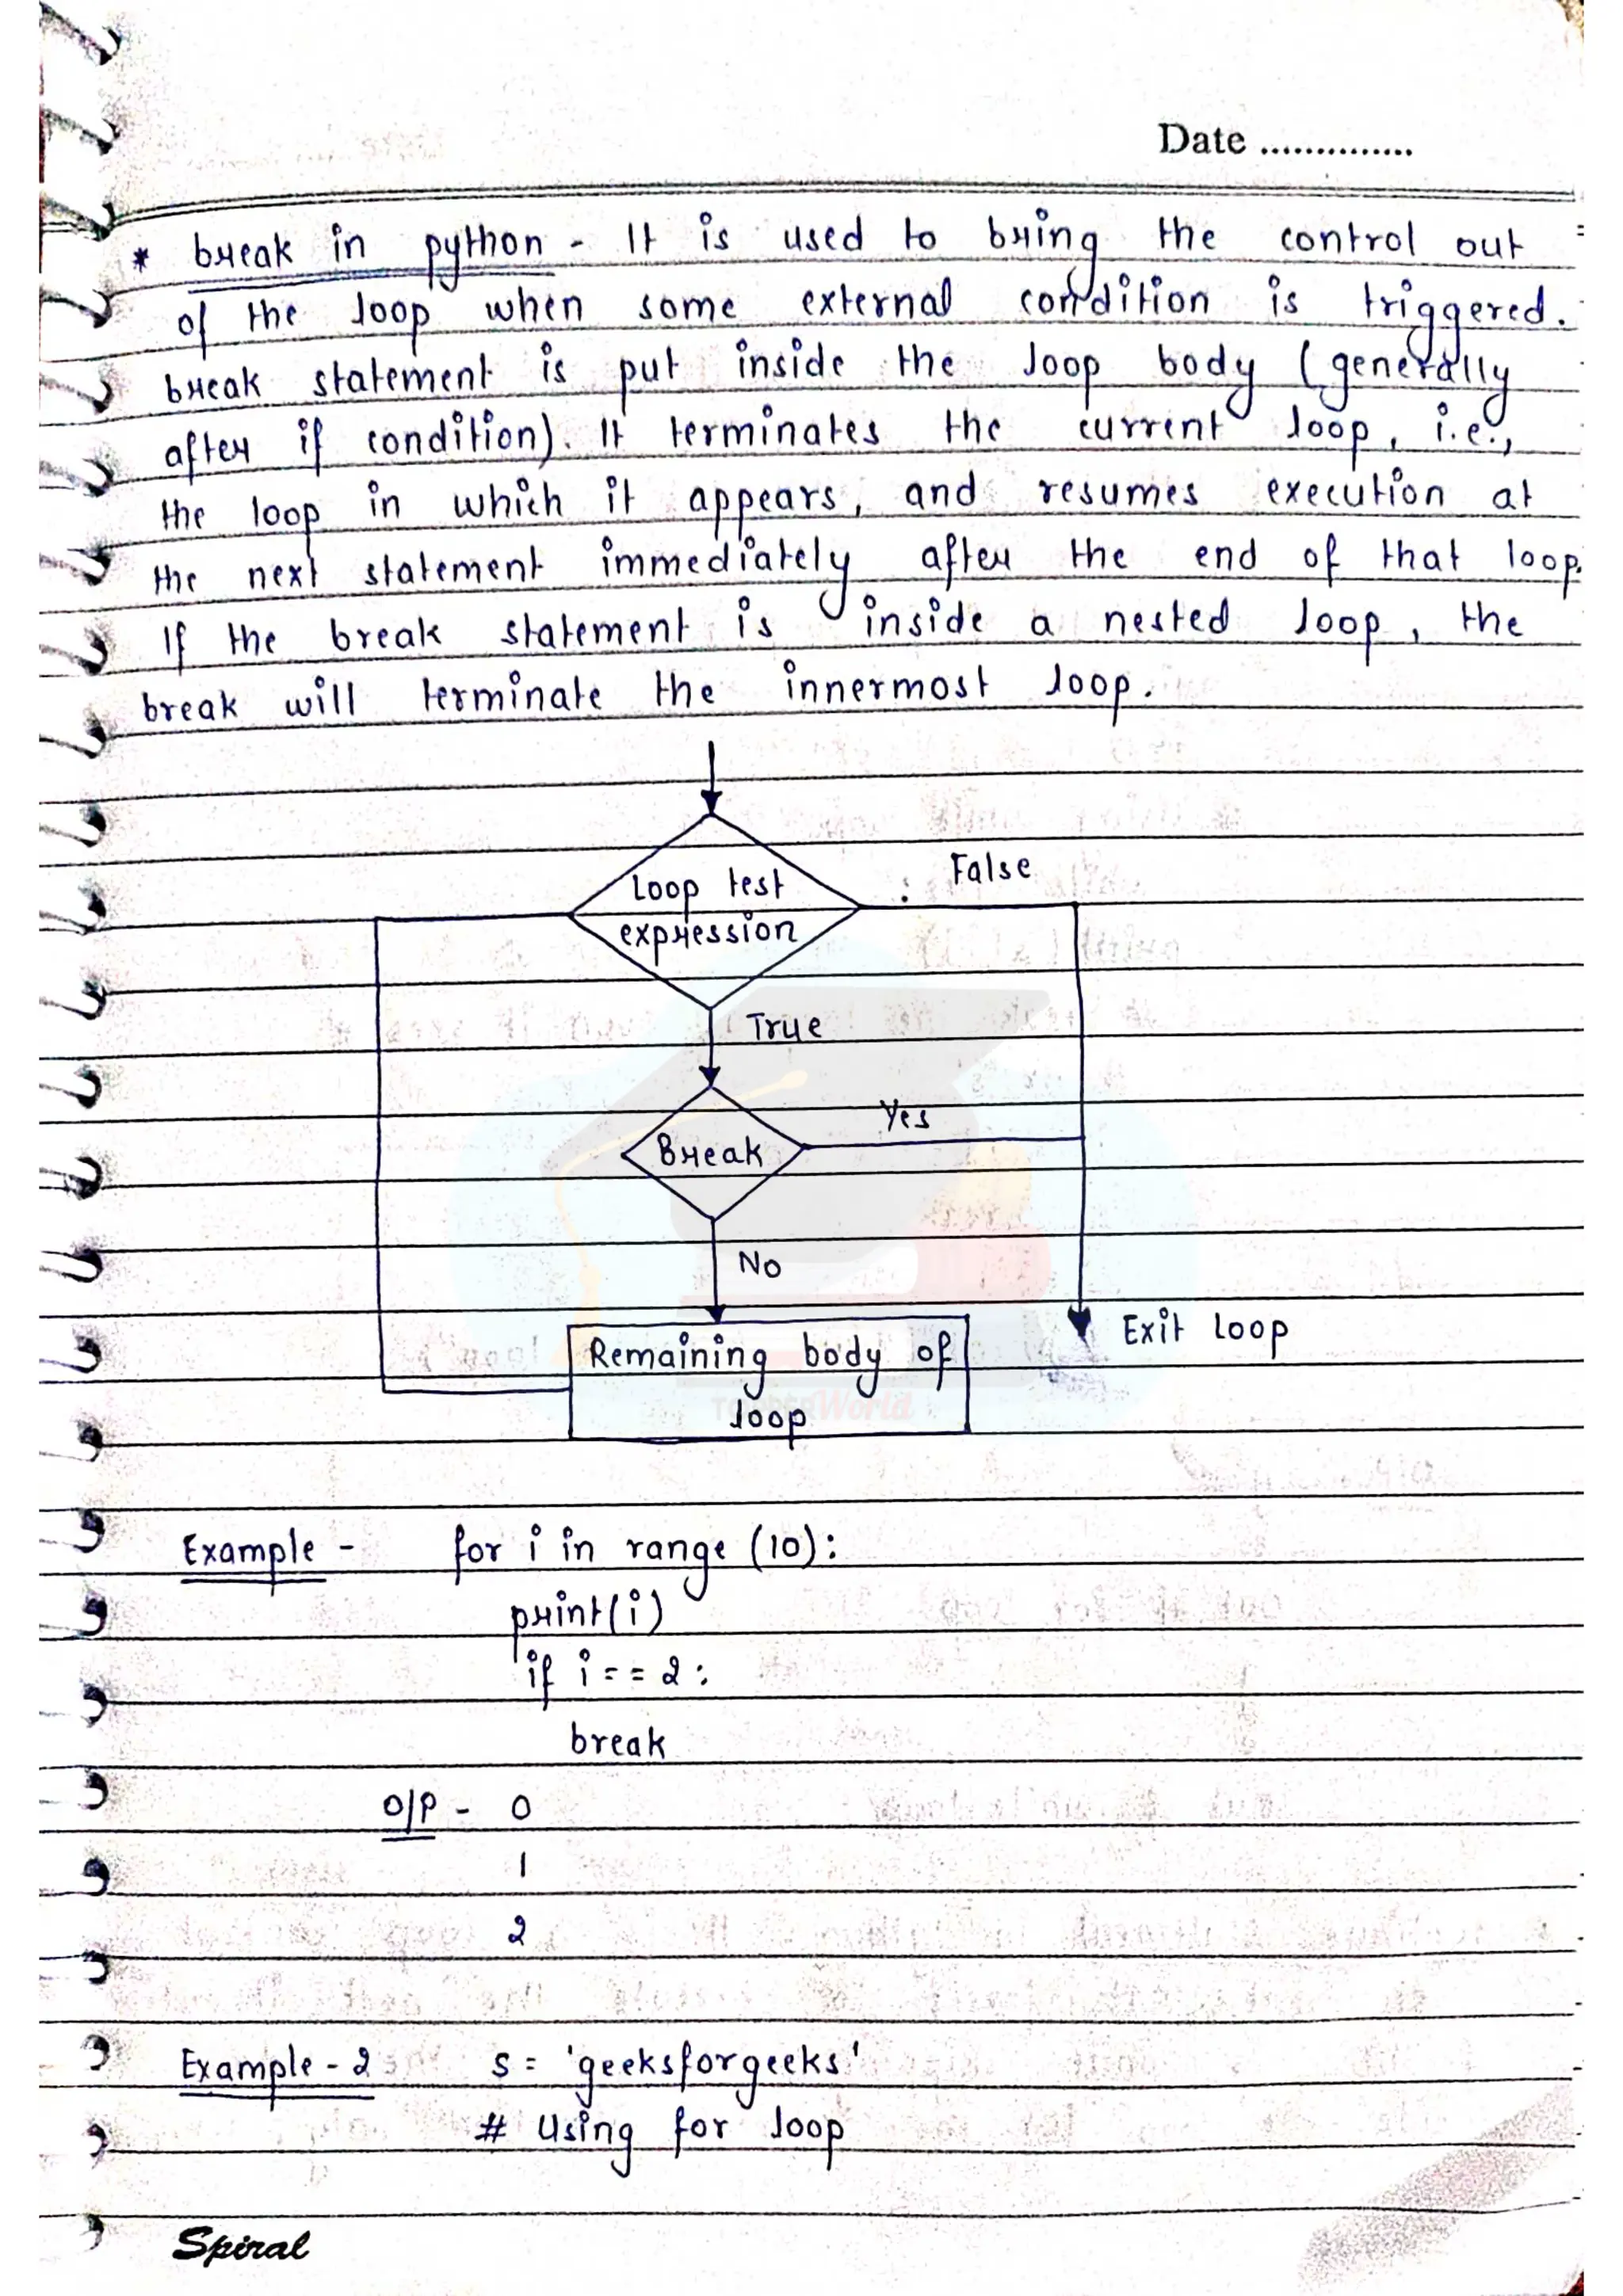 Date ..............
* break in python - It is used to bring the control out
of the loop when some external condition is triggered.
break statement is put inside the loop body (generally
after if condition). It terminates the current loop, i.e.,
the loop in which it appears, and resumes execution at
the next statement immediately after the end of that loop.
If the break statement is inside a nested loop, the
break will terminate the innermost loop.
Loop test
expression
False
True
Break
Yes
No
Remaining body of
loop
Exit loop
TOPPERWorld
Example - for i in range (10):
print(i)
if i == 2:
break
O/P - 0
1
2
Example - 2 s = 'geeksforgeeks'
# Using for loop
Spiral